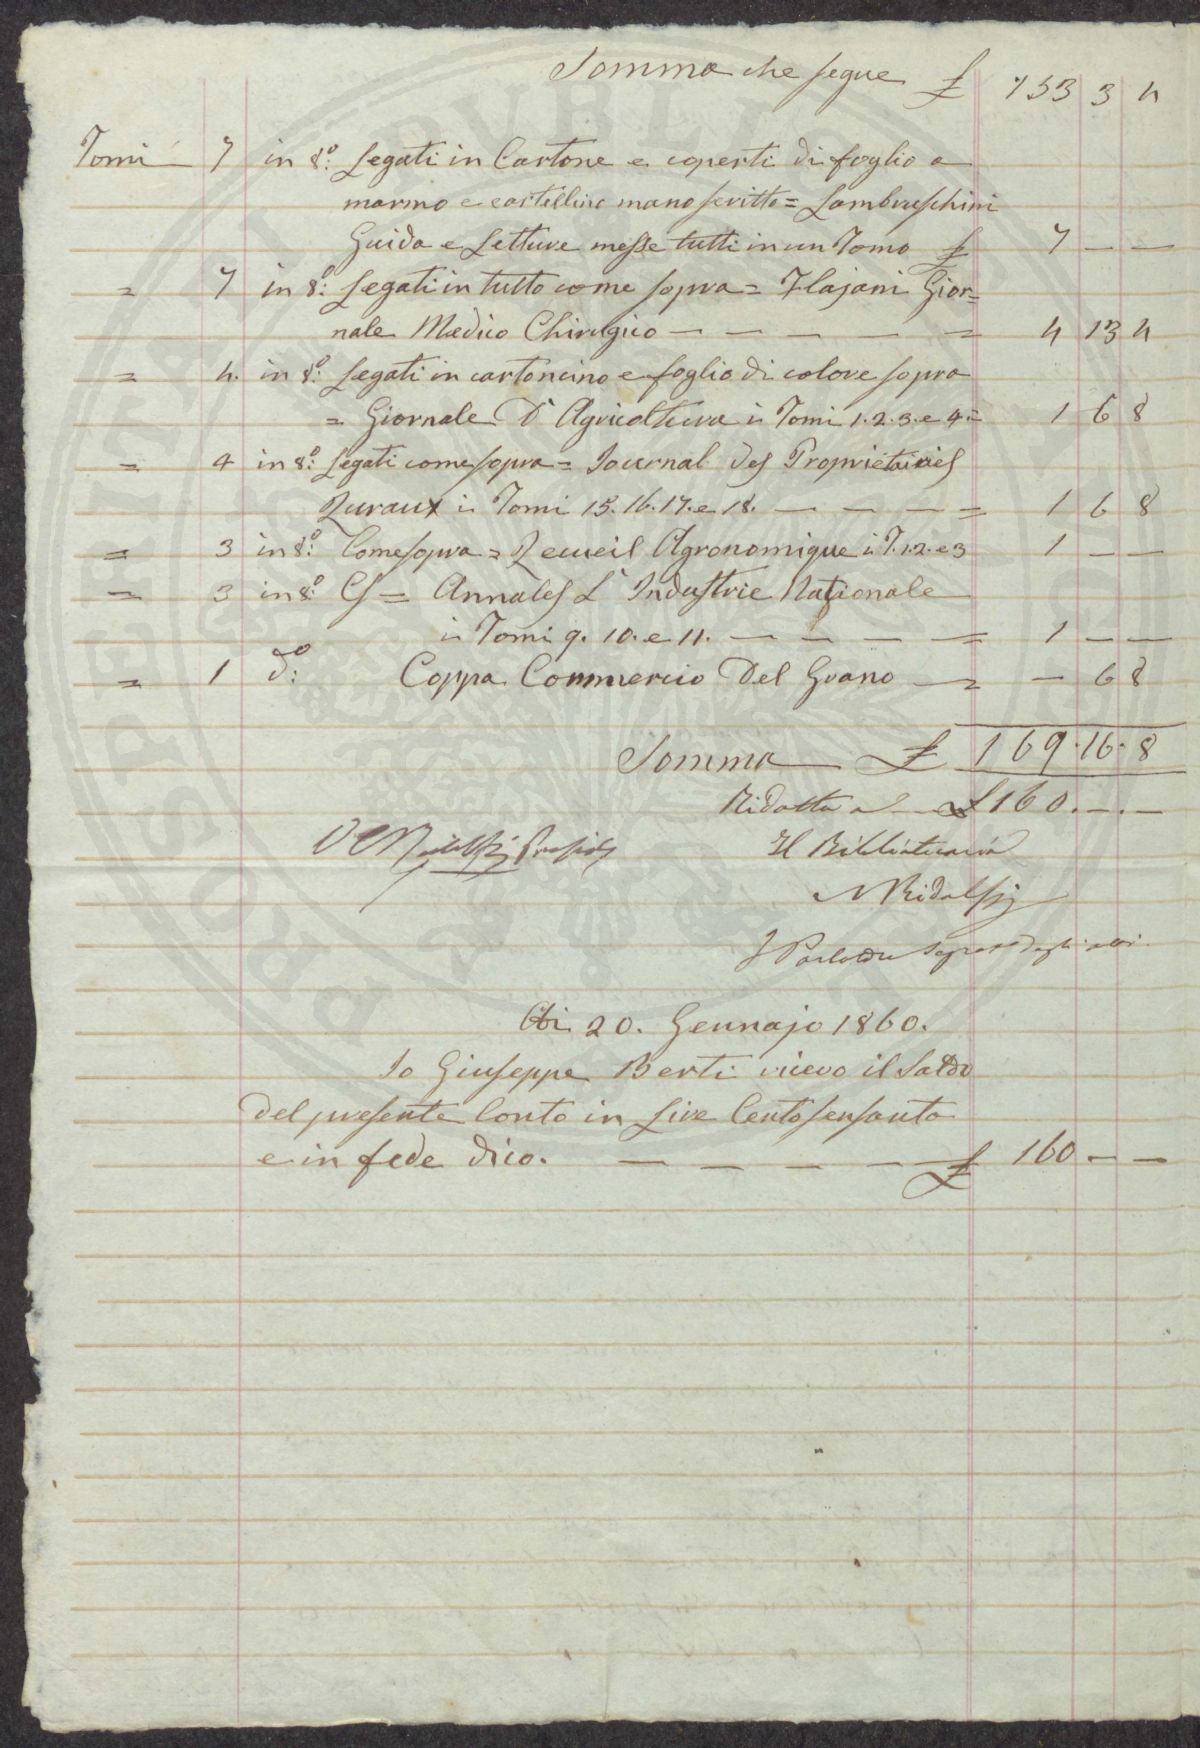 Somma che segue £ 153 3 4
Tomi 7 in 8º: Legati in Cartone e coperti di foglio a
marmo e cartellino manoscritto = Lambruschini
Guida e Letture messe tutti in un Tomo £ 7 — —
= 7 in 8º: Legati in tutto come sopra = Flajani Gior=
nale Medico Chirugico — — — — — = 4 13 4
= 4. in 8º: Legati in cartoncino e foglio di colore sopra
= Giornale D'Agricoltura i Tomi 1.2.3. e 4. = 1 6 8
= 4 in 8º: Legati come sopra = Journal des Proprietairies
Ruraux i Tomi 15. 16. 17. e 18. — — — — = 1 6 8
= 3 in 8º: Come sopra = Recueil Agronomique i T. 1. 2. e 3 1 — —
= 3 in 8º: CS = Annales L'Industrie Nationale
i Tomi 9. 10. e 11. — — — — = 1 — —
= 1 dº: Coppa Commercio Del Grano — = — 6 8
Somma £ 169. 16. 8
Ridotta a £ 160. —. —
Il Bibliotecario
Ridolfi
Adi 20. Gennajo 1860.
Io Giuseppe Berti ricevo il Saldo
del presente Conto in Lire Centosensanta
e in fede dico. — — — — — £ 160 — —
PUBLI